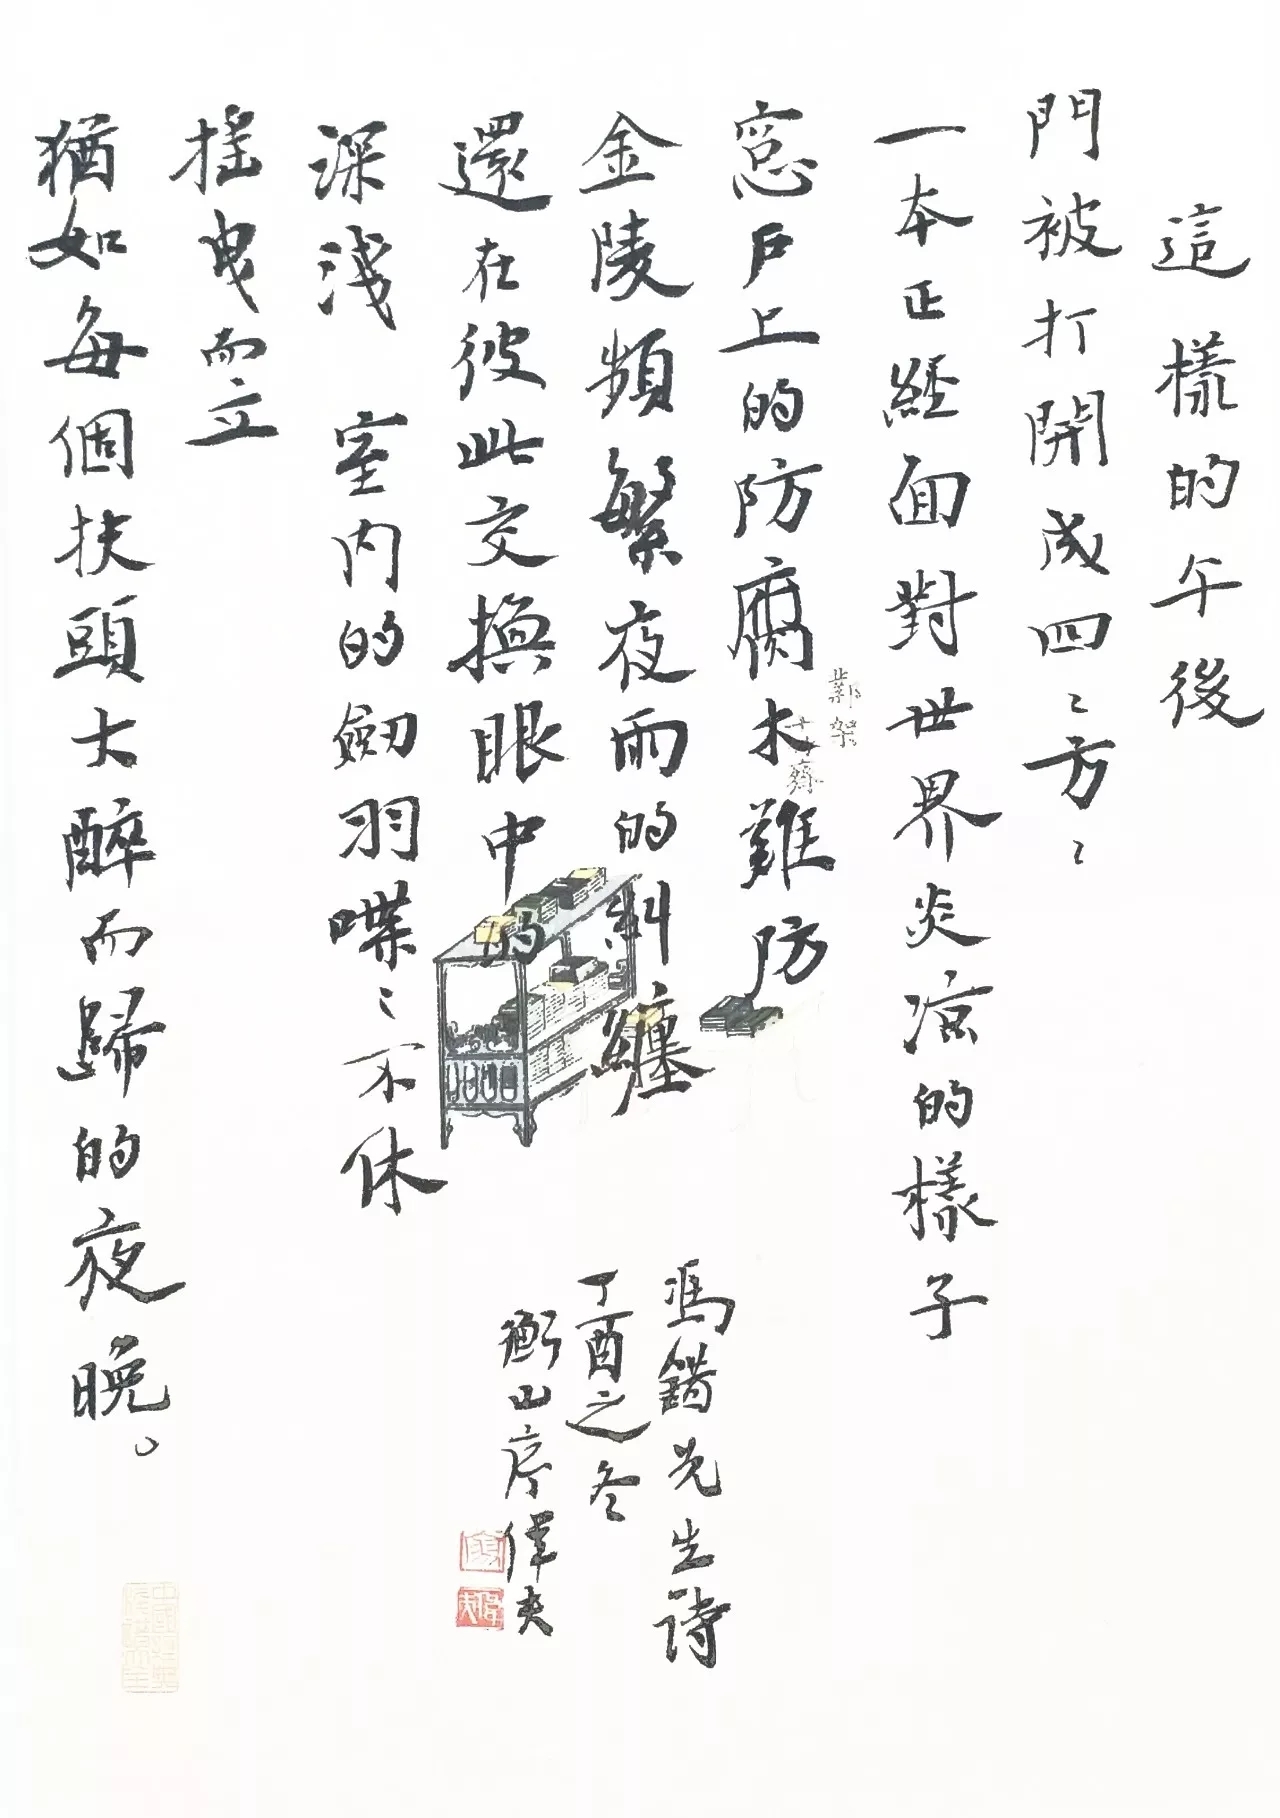 這樣的午後
門被打開成四〻方〻
一本正經面對世界炎涼的樣子
窓戶上的防腐木難防
金陵頻繁夜雨的糾纏
還在彼此交換眼中的
深淺 室内的劒羽喋〻不休
搖曳而立
猶如每個扶頭大醉而歸的夜晚。
鄴架
十竹齋
馮錯先生詩
丁酉之冬
衡山 偉夫
偉夫